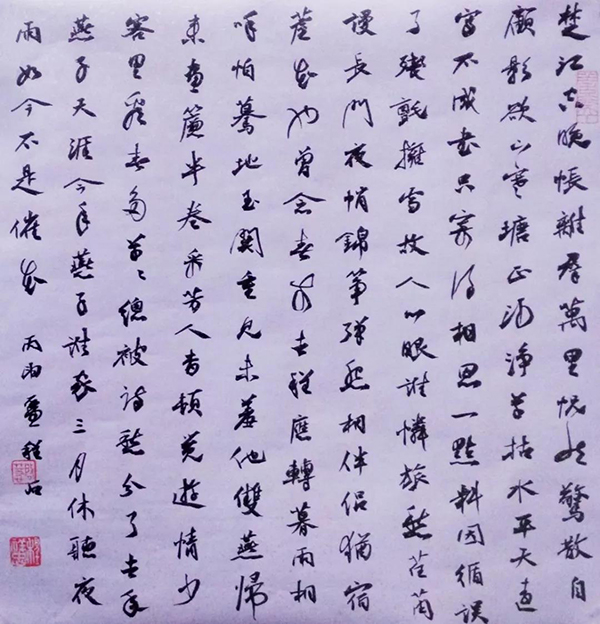 楚江空晚悵離群萬里恍然驚散自
顧影欲下寒塘正沙淨草枯水平天遠
寫不成書只寄得相思一點料因循誤
了殘氈擁雪故人心眼誰憐旅愁荏苒
謾長門夜悄錦箏彈怨想伴侶猶宿
蘆花也曾念春前去程應轉暮雨相
呼怕驀地玉關重見未羞他雙燕歸
來畫簾半卷采芳人杳頓覺遊情少
客里看春多草草總被詩愁分了去年
燕子天涯今年燕子誰家三月休聽夜
雨如今不是催花